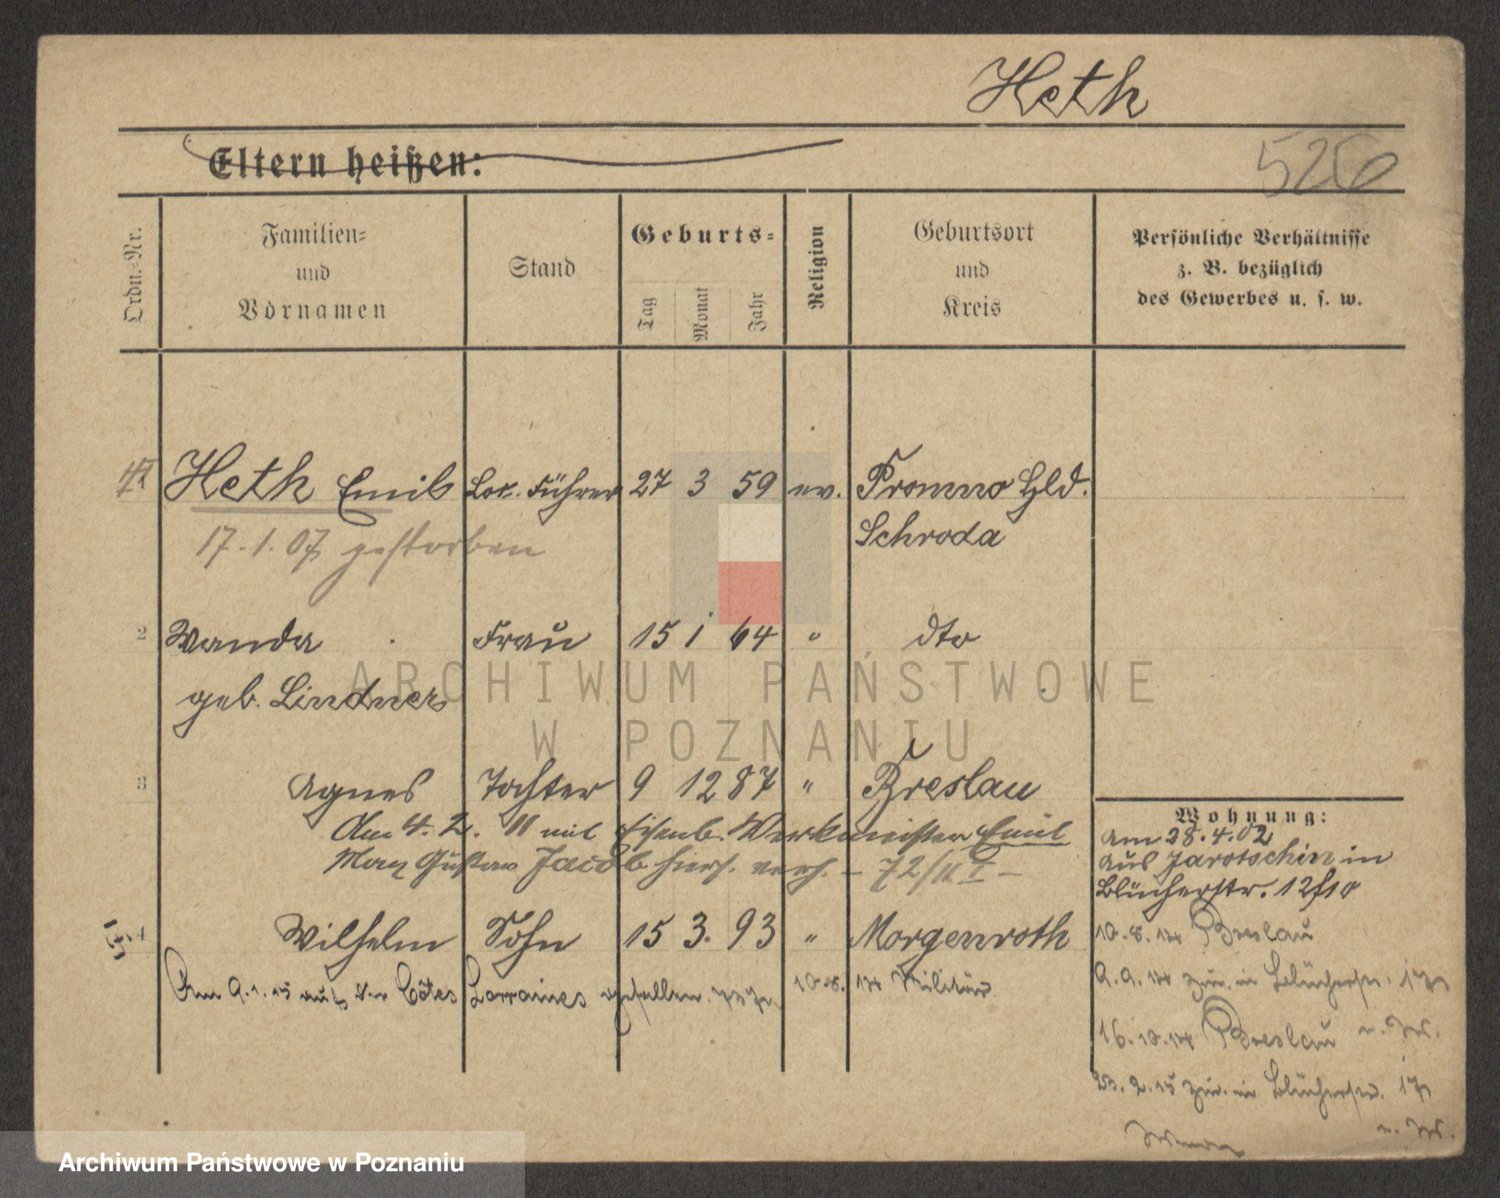 Heth
Eltern heißen:
526
Ordn.-Nr.
Familien-
und
Vornamen
Stand
Geburts-
Tag
Monat
Jahr
Religion
Geburtsort
und
Kreis
Persönliche Verhältnisse
z. B. bezüglich
des Gewerbes u. s. w.
Heth Emil Lok. Führer 27 3 59 ev. Promno Hld.
17.1.07 gestorben Schroda
2 Wanda Frau 15 1 64 " dto
geb. Lindner
3 Agnes Tochter 9 12 87 " Breslau
Am 4. 2. 11 mit Eisenb. Werkmeister Emil
Max Gustav Jacob hies. verh. – 72/11 I –
4 Wilhelm Sohn 15 3. 93 " Morgenroth
Am 9.1.15 auf den Côtes Lorraines gefallen. 10.8.14 Militär
Wohnung:
am 28.4.02
aus Jarotschin in
Blücherstr. 12
10.8.14 Breslau
9.9.14 zur. in Blücherstr.
16.10.14 Breslau
23.2.15 zur. in Blücherstr.
ARCHIWUM PAŃSTWOWE
W POZNANIU
Archiwum Państwowe w Poznaniu